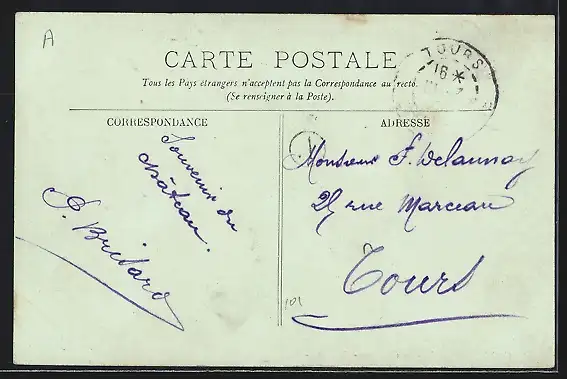 A
CARTE POSTALE
TOURS
16
Tous les Pays étrangers n'acceptent pas la Correspondance au recto.
(Se renseigner à la Poste).
CORRESPONDANCE
ADRESSE
Souvenir du
château.
Monsieur F. Delaunay
25 rue Marceau
Tours
101